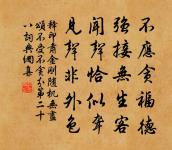 不應貪福德
強接無生客
聞聲恰似聾
見聲非外色
釋印肅金剛隨機無盡
頌不受不貪分第二十
八詞典網喜